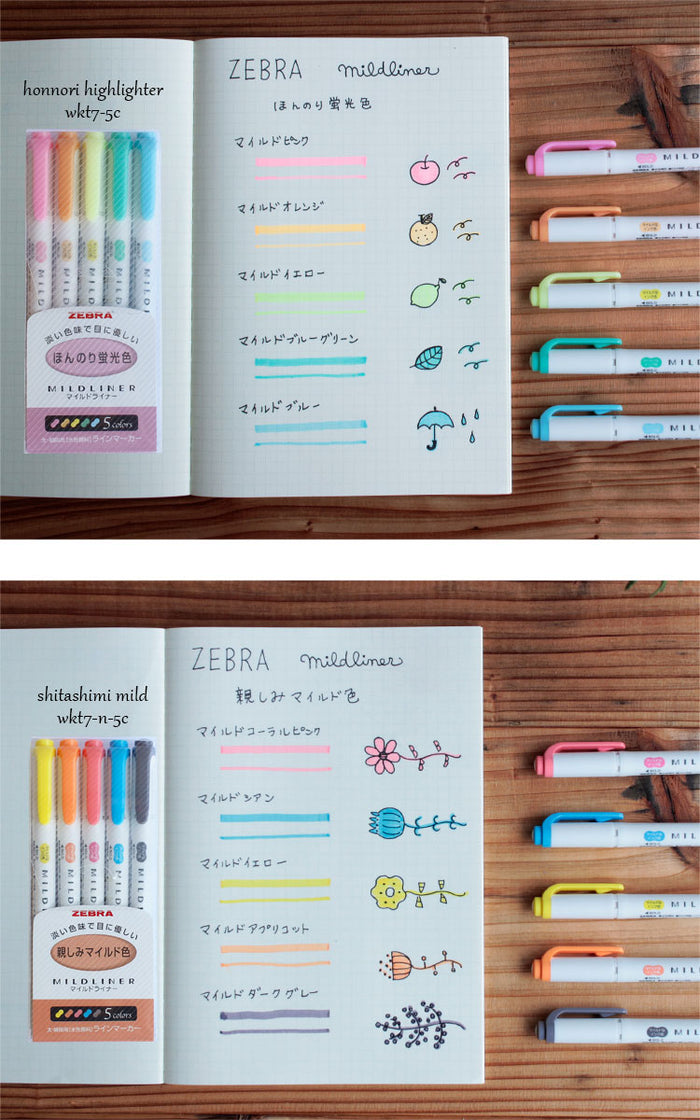 honnori highlighter
wkt7-5c
ZEBRA
淡い色味で目に優しい
ほんのり蛍光色
MILDLINER
マイルドライナー
5 colors
ラインマーカー
ZEBRA mildliner
ほんのり蛍光色
マイルドピンク
マイルドオレンジ
マイルドイエロー
マイルドブルーグリーン
マイルドブルー
MILD
MILD
MILD
MILD
MILD
shitashimi mild
wkt7-n-5c
ZEBRA
淡い色味で目に優しい
親しみマイルド色
MILDLINER
マイルドライナー
5 colors
ラインマーカー
ZEBRA mildliner
親しみマイルド色
マイルドコーラルピンク
マイルドシアン
マイルドイエロー
マイルドアプリコット
マイルドダークグレー
MILD
MILD
MILD
MILD
MILD